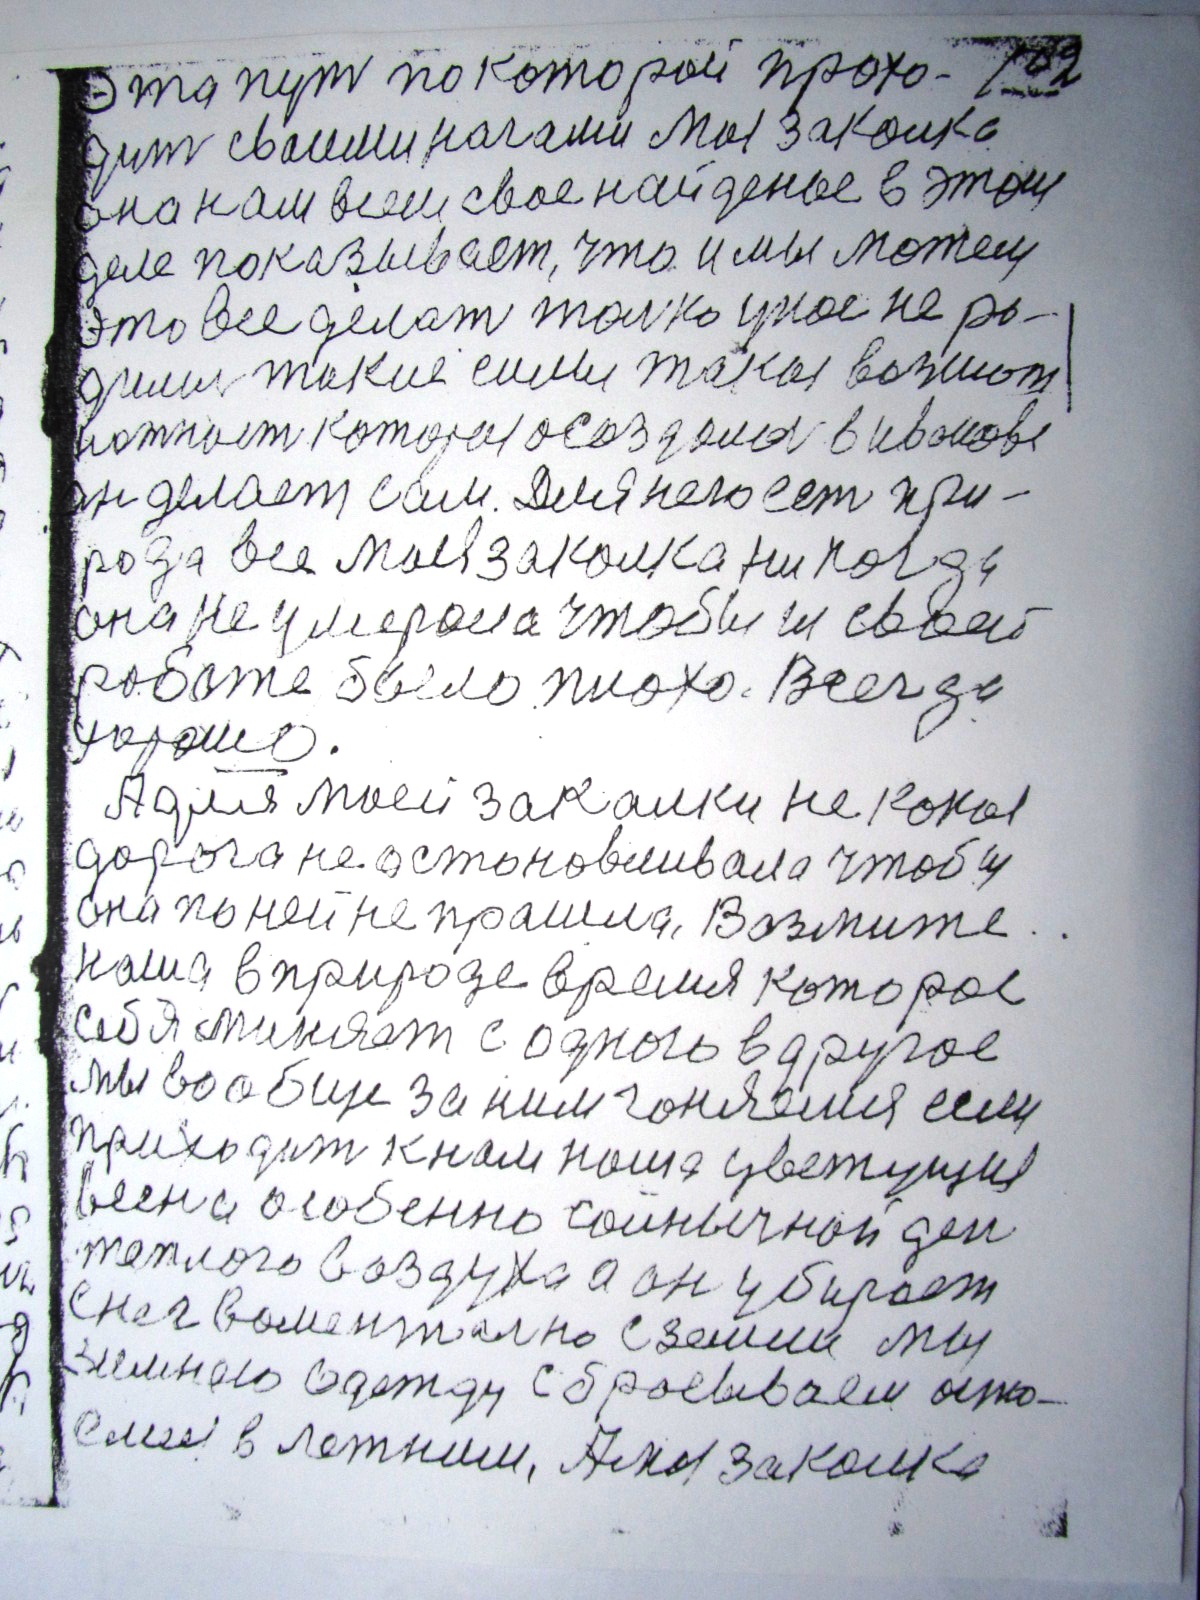 Эта пут по которой прохо- 192
дит своими ногами моя закалка
она нам всем свое найденое в этом
деле показывает, что и мы можем
это все делат толко у нас не ро-
дилис такие силы такая возмож
ностках которая создалас в Иванове
он делает сам. Для него ест при-
рода все моя закалка никогда
она не умерала чтобы и своей
работе было плохо. Всегда
хорошо.
А для моей закалки не кокая
дорога не остоновливала чтобы
она по ней не прашла. Возмите
наша в природе время которое
себя миняет с одного в другое
мы вообще за ним гоняемся если
приходит к нам наша цветущия
весна особенно солнычной ден
теплого воздуха а он убирает
снег воментално с земли мы
зимнею одежду сбрасываем
в летним, А моя закалка